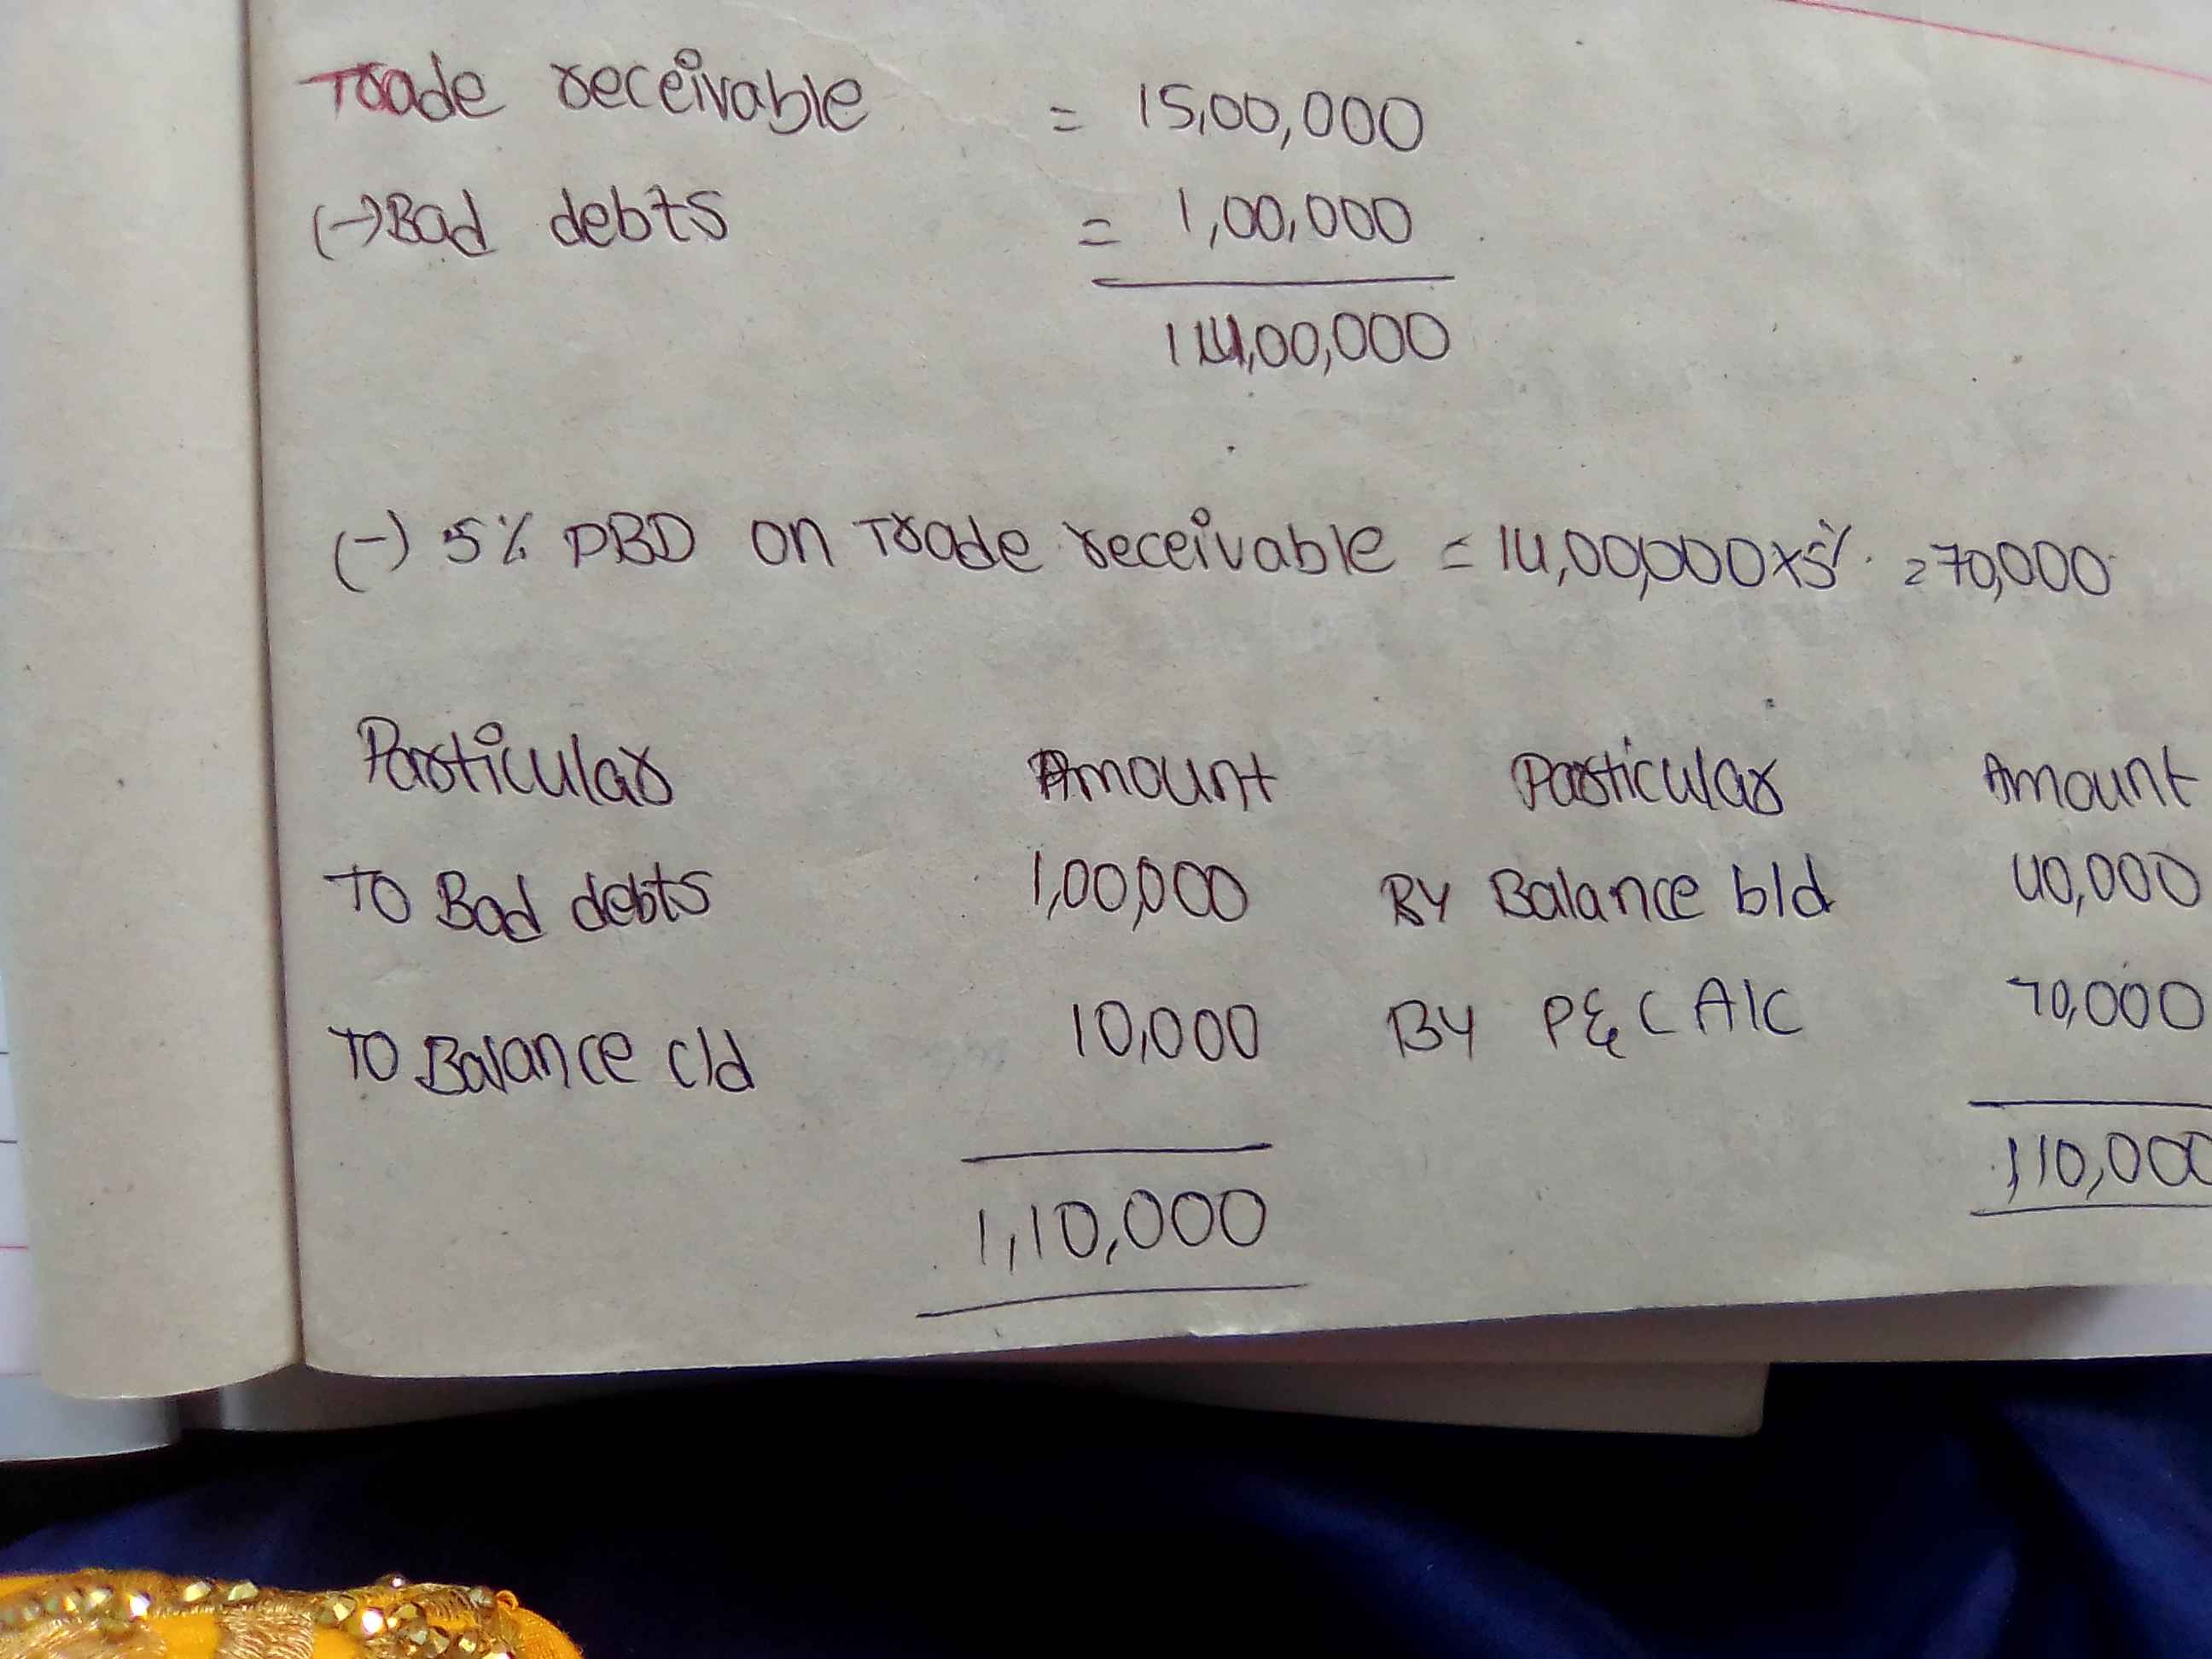 Trade receivable = 15,00,000
(-) Bad debts = 1,00,000
14,00,000
(-) 5% PBD on Trade receivable = 14,00,000 x 5% = 70,000
Particular Amount Particular Amount
To Bad debts 1,00,000 By Balance b/d 40,000
To Balance c/d 10,000 By P&L A/C 70,000
1,10,000 1,10,000